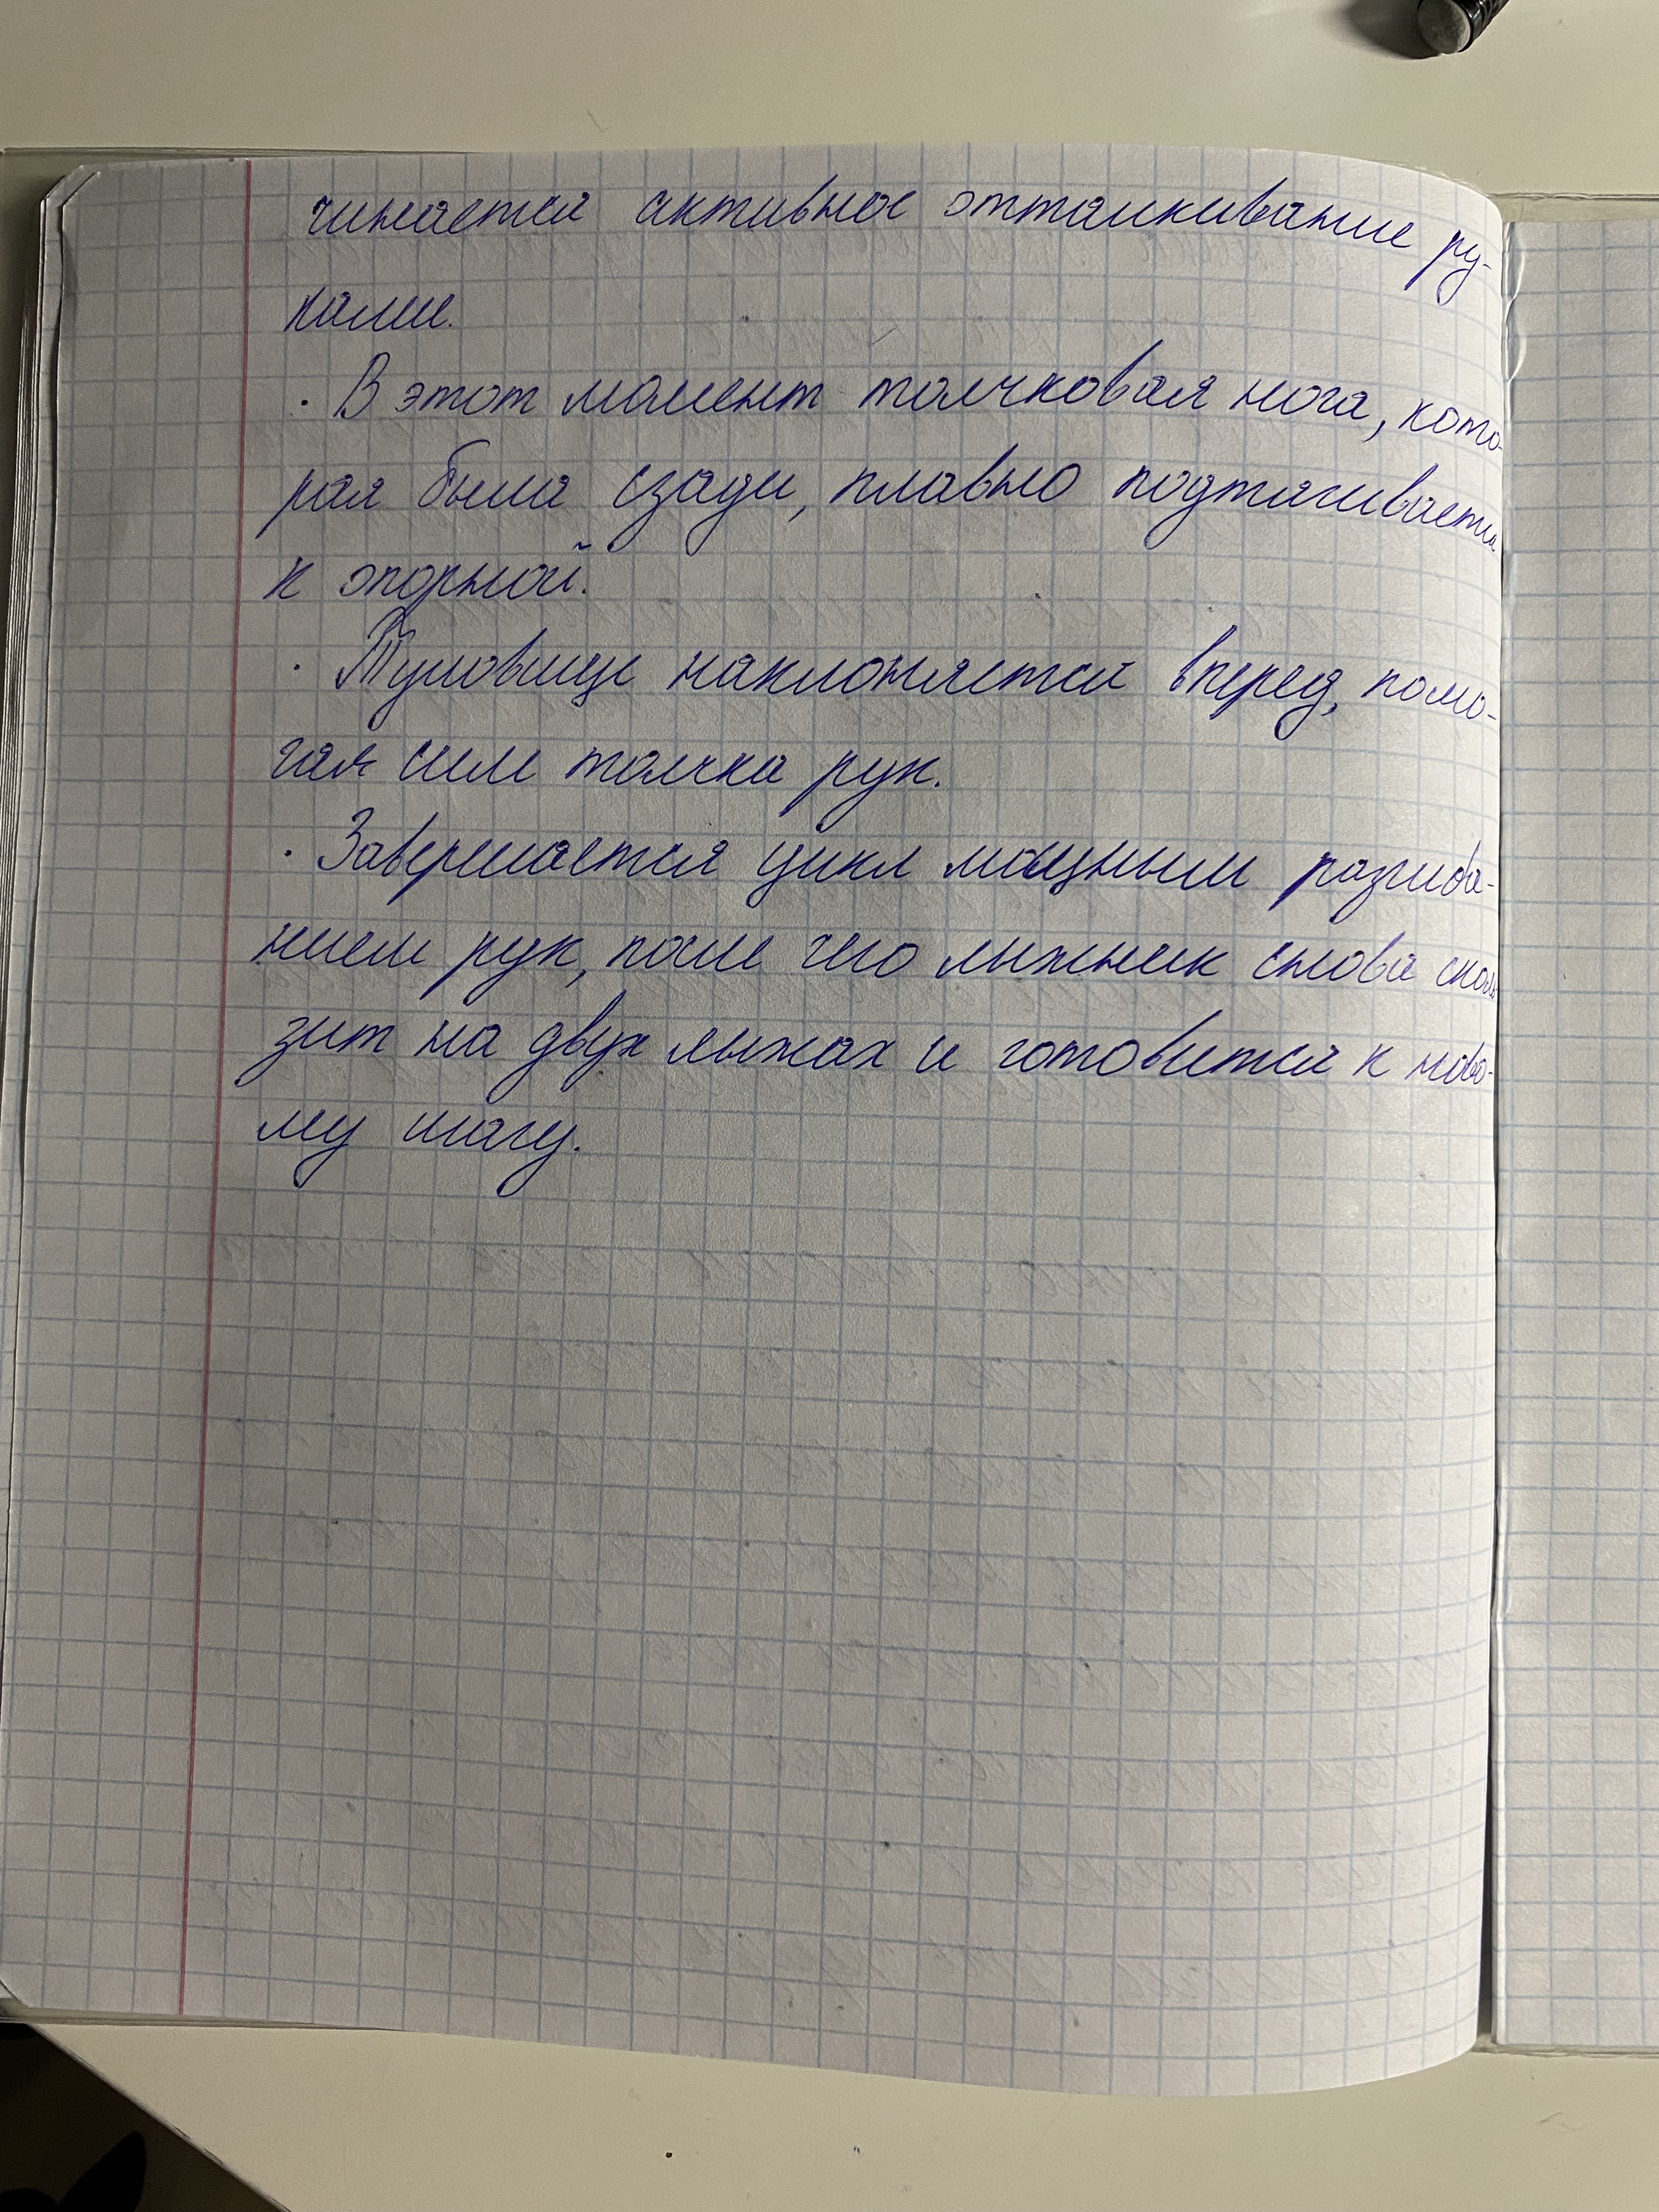 чинается активное отталкивание ру-
ками.
· В этот момент толчковая нога, кото-
рая была сзади, плавно подтягивается
к опорной.
· Туловище наклоняется вперед, помо-
гая сил толчка рук.
· Завершается цикл мощным разгиба-
нием рук, после чего лыжник снова сколь
зит на двух лыжах и готовится к ново-
му шагу.